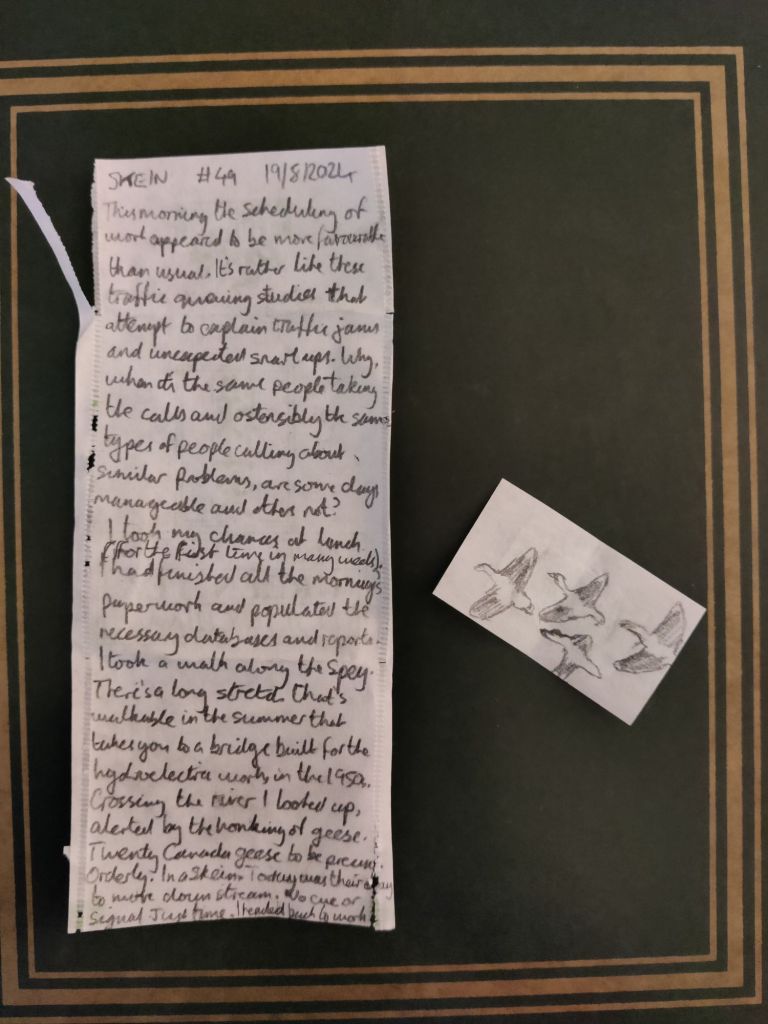 SKEIN #49 19/8/2024
This morning the scheduling of
work appeared to be more favourable
than usual. It's rather like these
traffic queuing studies that
attempt to explain traffic jams
and unexpected snarl ups. Why,
when it's the same people taking
the calls and ostensibly the same
types of people calling about
similar problems, are some days
manageable and others not?
I took my chances at lunch
(for the first time in many weeks).
I had finished all the morning's
paperwork and populated the
necessary databases and reports.
I took a walk along the Spey.
There's a long stretch that's
walkable in the summer that
takes you to a bridge built for the
hydroelectric works in the 1950s.
Crossing the river I looked up,
alerted by the honking of geese.
Twenty Canada geese to be precise.
Orderly. In a skein. Today was their day
to move down stream. No cue or
signal. Just time. I headed back to work.